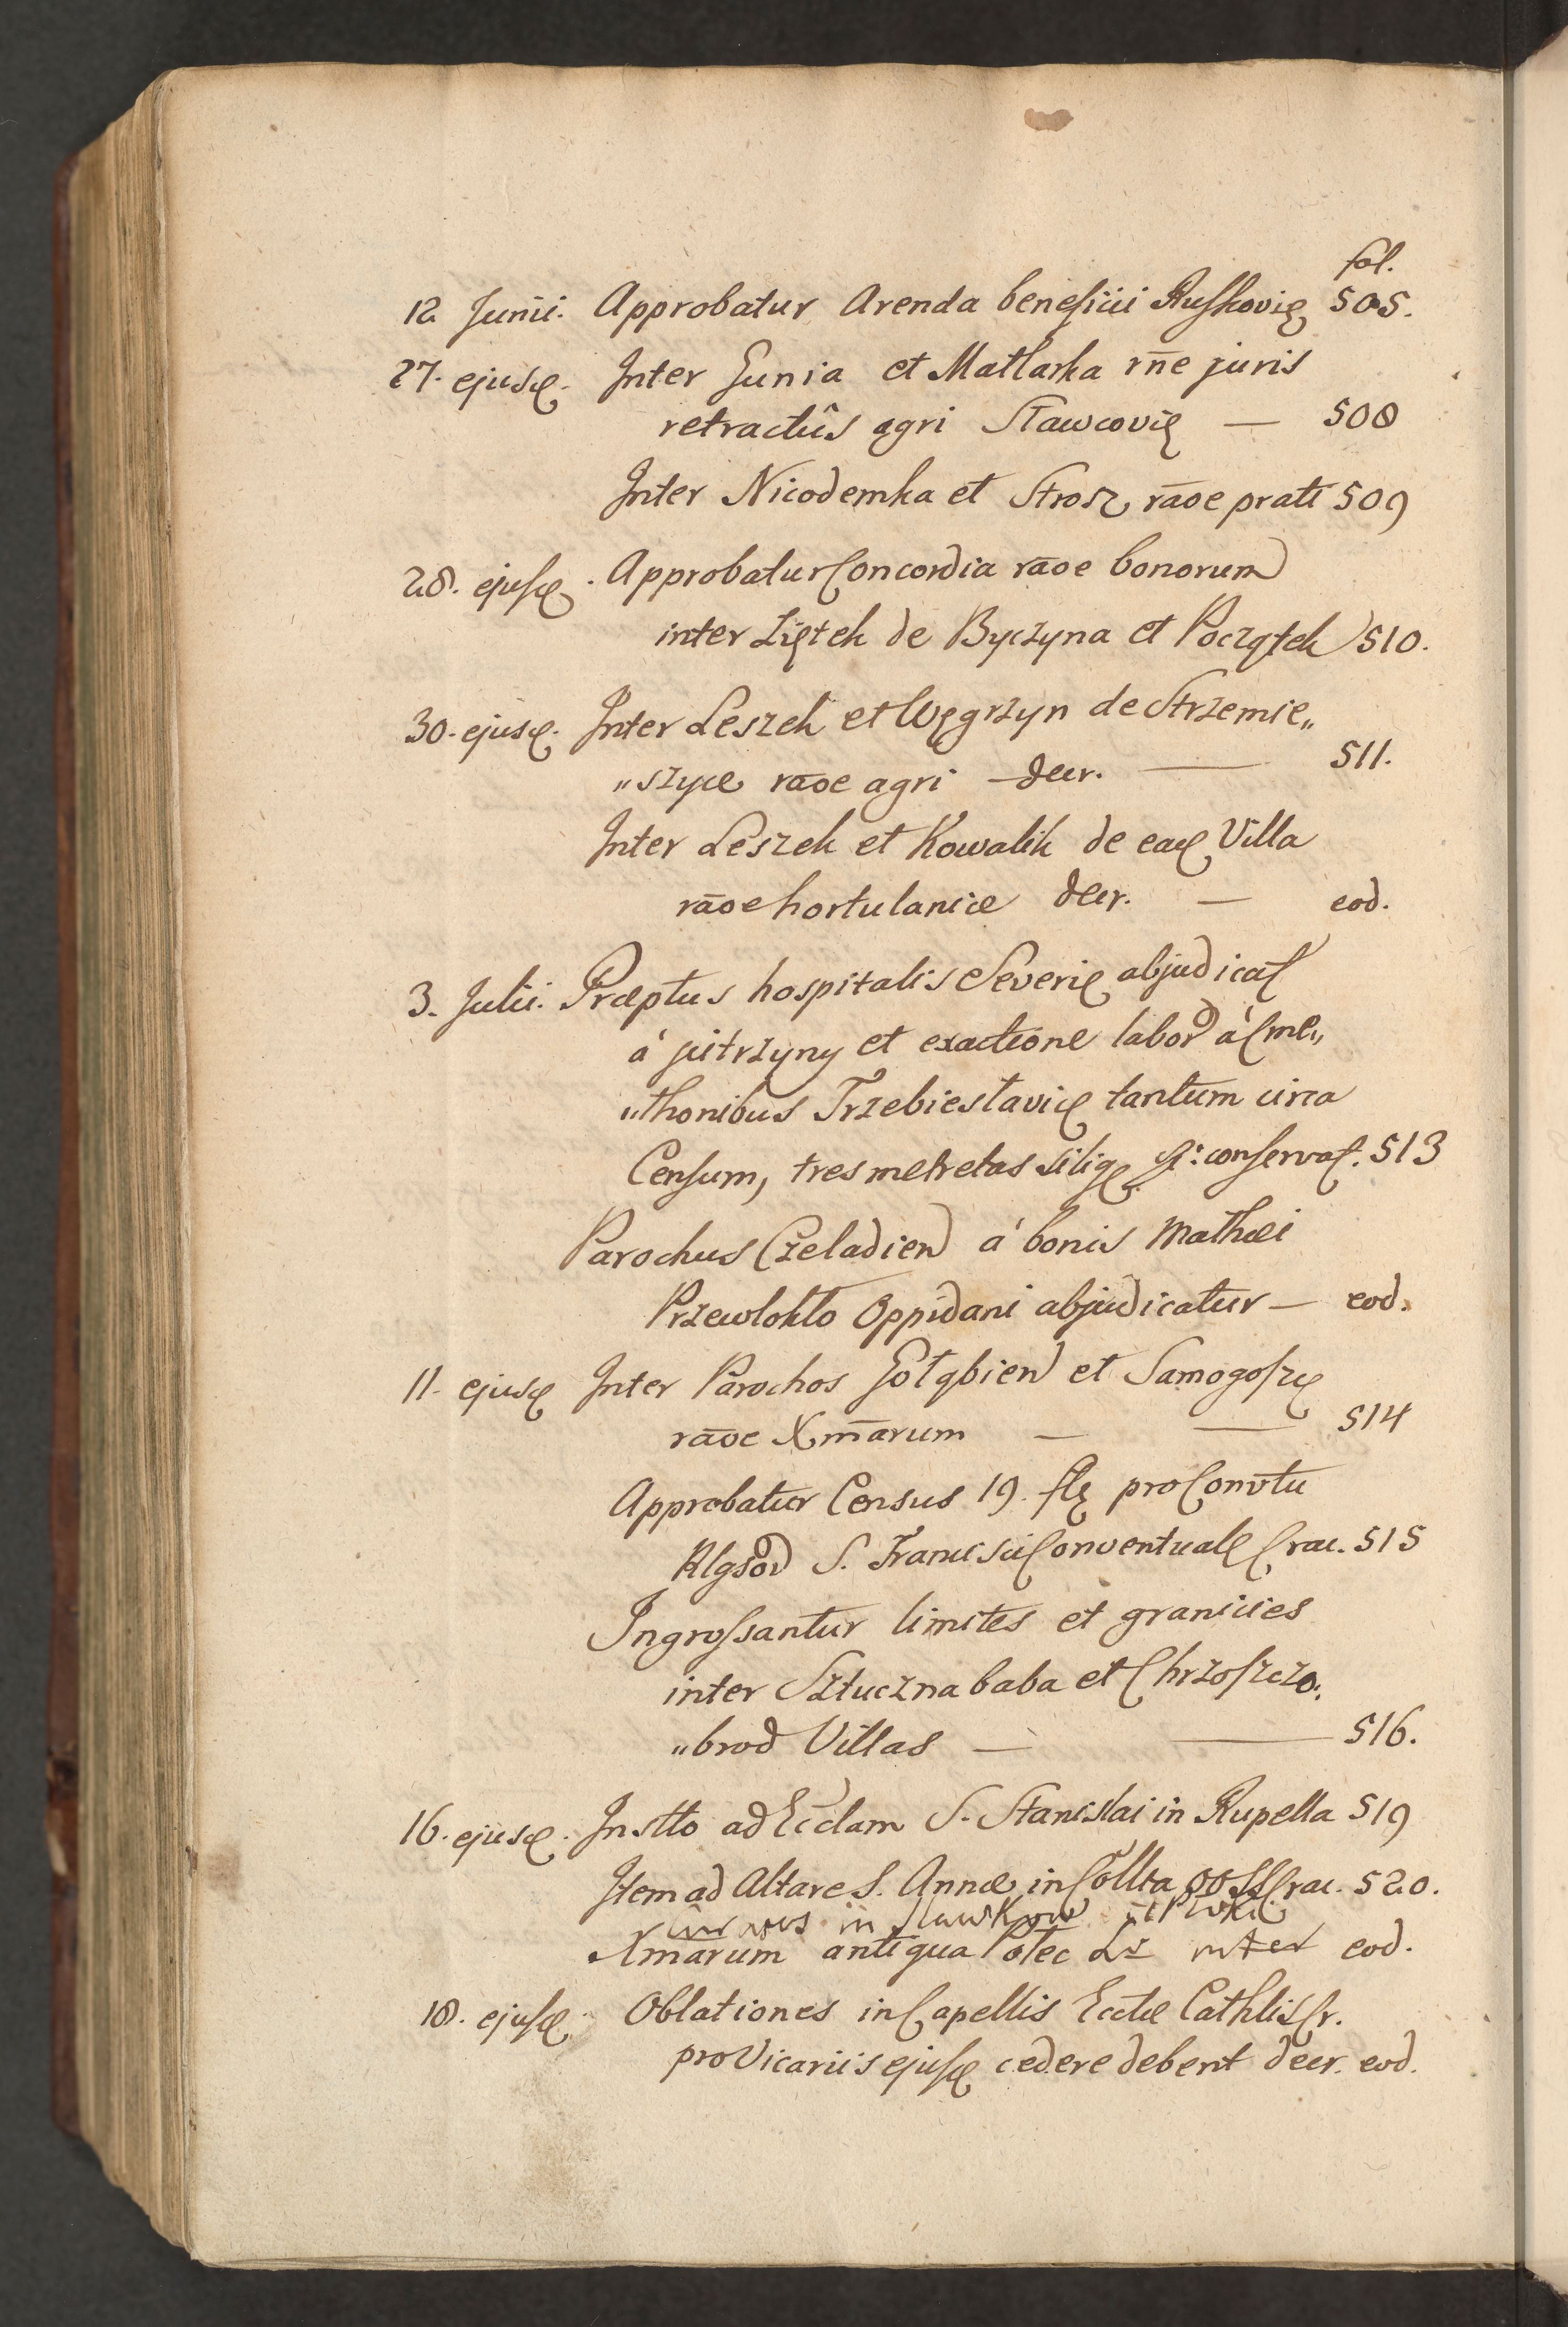 fol.
12 Junii. Approbatur Arenda beneficii Ruskovię 505.
27. ejusd. Inter Gunia et Matlarka rn̄e juris
retractûs agri Sławcovię — 508
Inter Nicodemka et Strosz rāoe prati 509
28. ejusd. Approbatur Concordia rāoe bonorum
inter Ziętek de Byczyna et Początek 510.
30. ejusd. Inter Leszek et Węgrzyn de Strzemie„
„szyce rāoe agri – decr. — 511.
Inter Leszek et Kowalik de ead Villa
rāoe hortulaniæ decr. — eod.
3. Julii. Præptus hospitalis Severię abjudicat
à jutrzyny et exactione labor à Cme„
„thonibus Trzebiesłavic tantum circa
Censum, tres metretas silig conservat. 513
Parochus Czeladien à bonis Mathæi
Przewlokło Oppidani abjudicatur — eod.
11. ejusd Inter Parochos Gołąbien et Samogosz
rāoe Xm̄arum — — 514
Approbatur Census 19. flę pro Convtu
Rlgsor S. Francisci Conventual Crac. 515
Ingrossantur limites et granicies
inter Sztuczna baba et Chrzoszczo„
„brod Villas — — 516.
16. ejusd. Instto ad Ecclam S. Stanislai in Rupella 519
Item ad Altare S. Annæ in Collta OO SS Crac. 520.
in Sławkow
Xm̄arum antiqua eod.
18. ejusd. Oblationes in Capellis Ecclæ Cathlis Cr.
pro Vicariis ejusd cedere debent decr. eod.